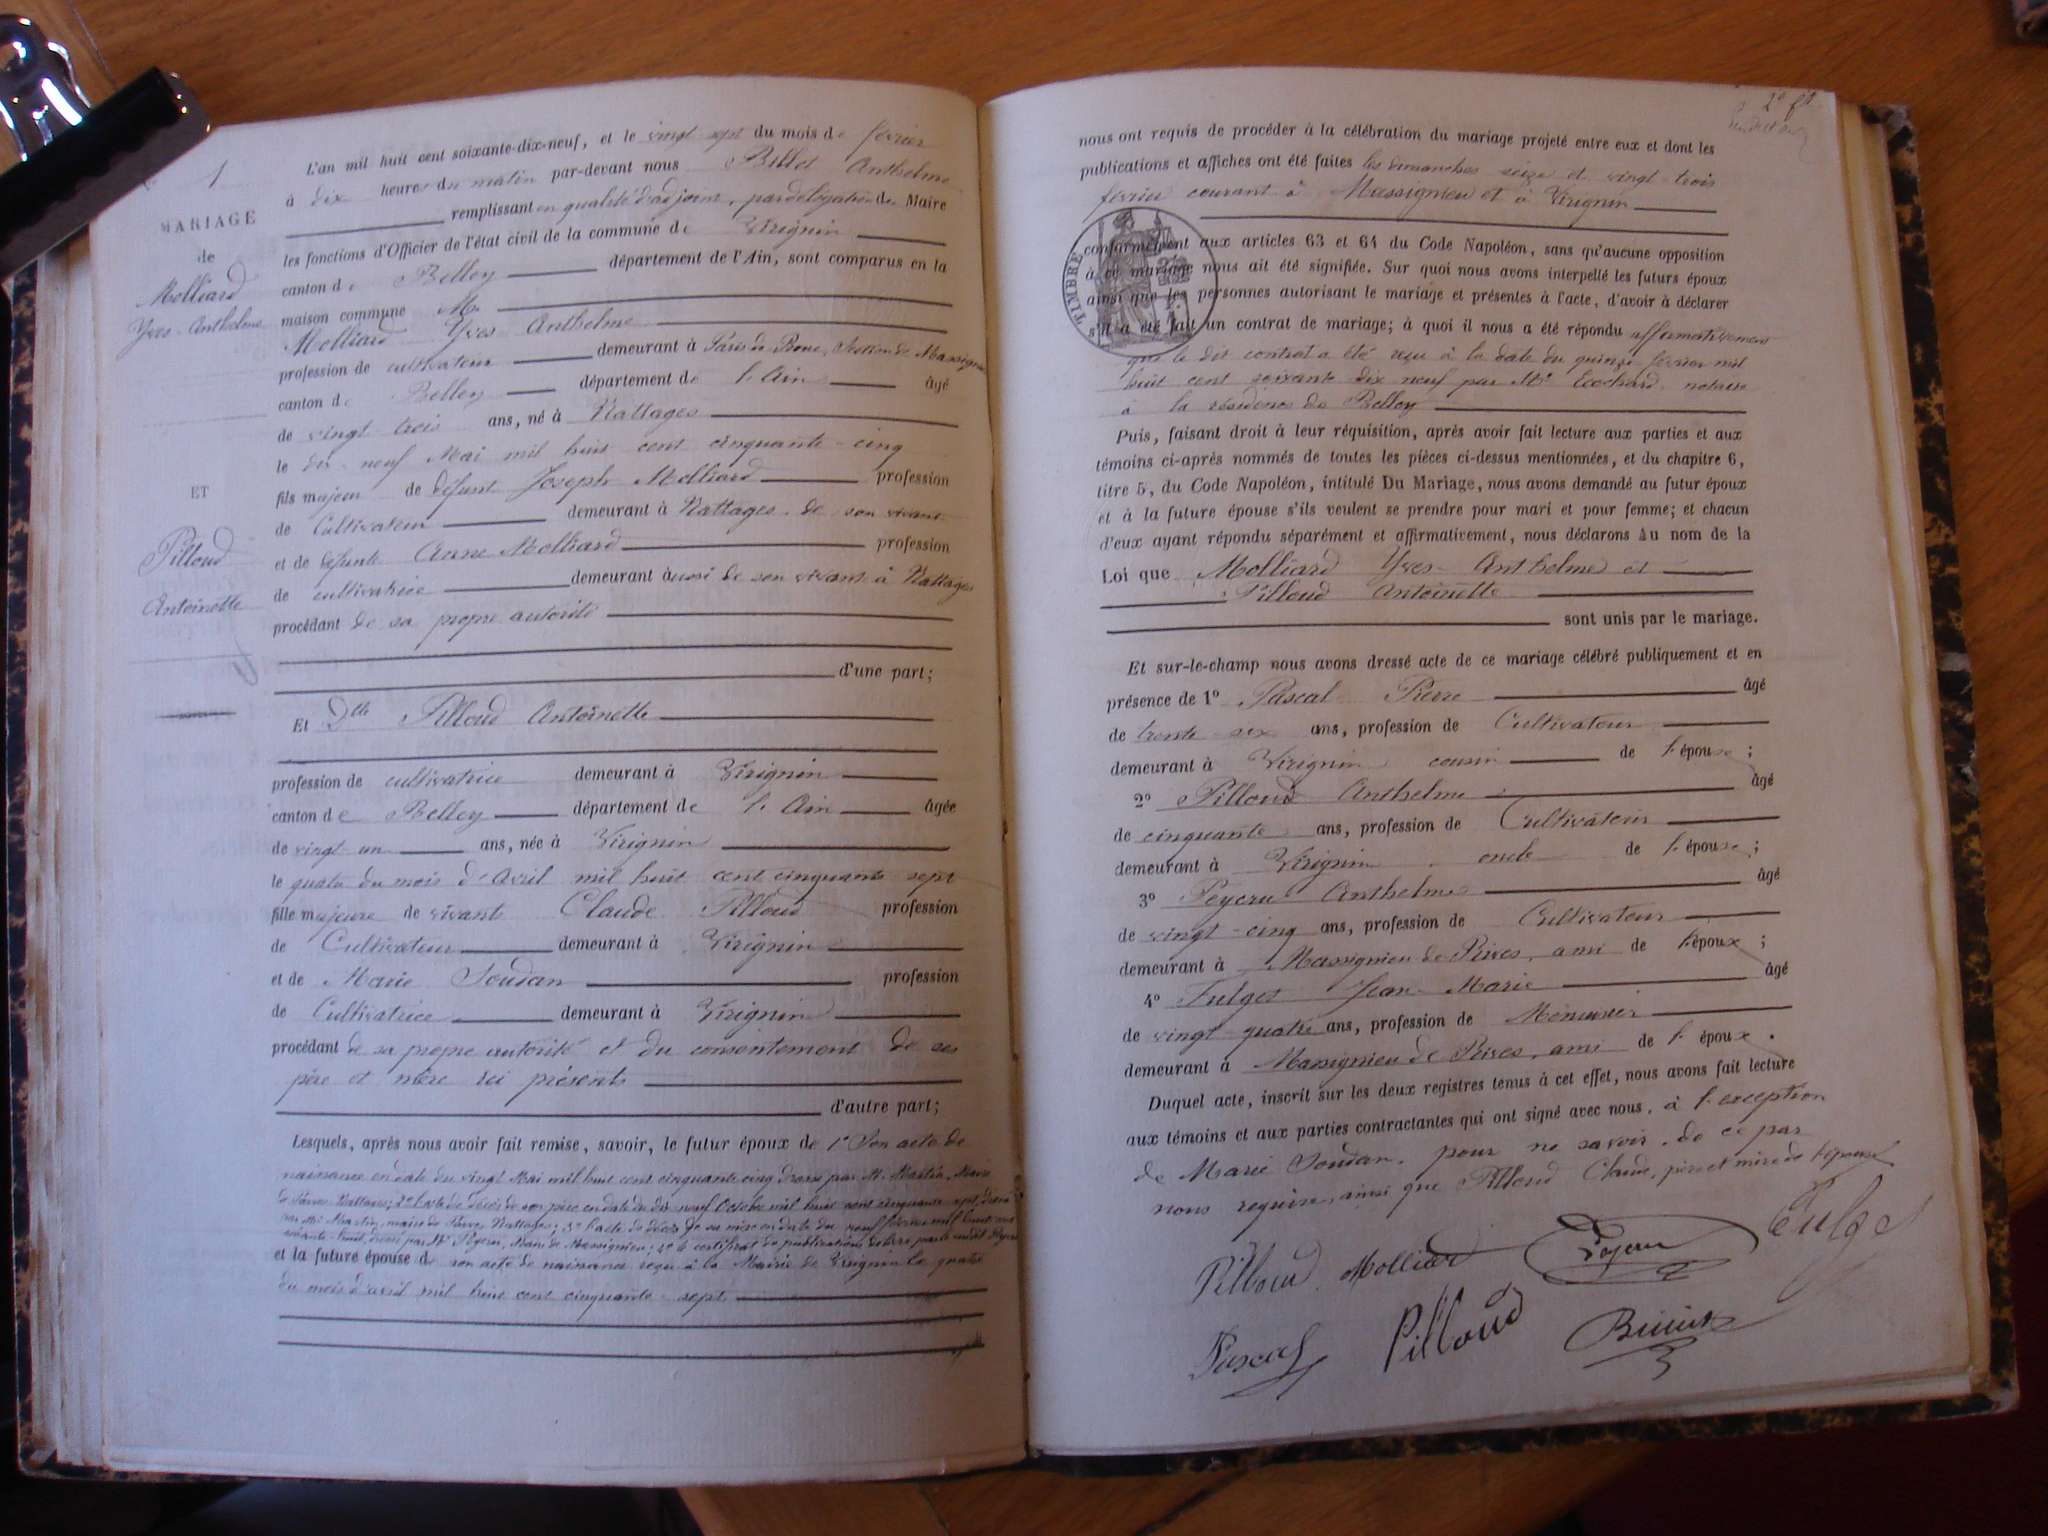 1
MARIAGE
de
Molliard
Yves-Anthelme
ET
Pilloud
Antoinette
L'an mil huit cent soixante-dix-neuf, et le vingt sept du mois de février
à dix heures du matin par-devant nous Billet Anthelme
remplissant en qualité d'adjoint, par délégation du Maire
les fonctions d'Officier de l'état civil de la commune de Virignin
canton de Belley département de l'Ain, sont comparus en la
maison commune M.
Molliard Yves Anthelme
profession de cultivateur demeurant à Section de Massignieu
canton de Belley département de l'Ain âgé
de vingt trois ans, né à Nattages
le dix-neuf Mai mil huit cent cinquante-cinq
fils majeur de défunt Joseph Molliard profession
de Cultivateur demeurant à Nattages de son vivant
et de défunte Anne Molliard profession
de cultivatrice demeurant aussi de son vivant à Nattages
procédant de sa propre autorité
d'une part;
Et Dlle Pilloud Antoinette
profession de cultivatrice demeurant à Virignin
canton de Belley département de l'Ain âgée
de vingt un ans, née à Virignin
le quatre du mois d'avril mil huit cent cinquante sept
fille majeure de vivants Claude Pilloud profession
de Cultivateur demeurant à Virignin
et de Marie Soudan profession
de Cultivatrice demeurant à Virignin
procédant de sa propre autorité et du consentement de ses
père et mère ici présents
d'autre part;
Lesquels, après nous avoir fait remise, savoir, le futur époux de 1° Son acte de
naissance en date du vingt Mai mil huit cent cinquante cinq dressé par M. Martin, Maire
de Nattages; 2° l'acte de décès de son père en date du dix neuf Octobre mil huit cent cinquante sept, dressé
par Mr Martin, maire de Nattages; 3° l'acte de décès de sa mère en date du neuf février mil huit cent
dressé par Mr Peycru, Maire de Massignieu; 4° le certificat de publications délivré par le susdit Peycru
et la future épouse de son acte de naissance reçu à la Mairie de Virignin le quatre
du mois d'avril mil huit cent cinquante-sept
nous ont requis de procéder à la célébration du mariage projeté entre eux et dont les
publications et affiches ont été faites les dimanches seize et vingt-trois
février courant à Massignieu et à Virignin
conformément aux articles 63 et 64 du Code Napoléon, sans qu'aucune opposition
à ce mariage nous ait été signifiée. Sur quoi nous avons interpellé les futurs époux
ainsi que les personnes autorisant le mariage et présentes à l'acte, d'avoir à déclarer
s'il a été fait un contrat de mariage; à quoi il nous a été répondu affirmativement
que le dit contrat a été reçu à la date du quinze février mil
huit cent soixante dix neuf par Me Ecochard notaire
à la résidence de Belley
TIMBRE
Puis, faisant droit à leur réquisition, après avoir fait lecture aux parties et aux
témoins ci-après nommés de toutes les pièces ci-dessus mentionnées, et du chapitre 6,
titre 5, du Code Napoléon, intitulé Du Mariage, nous avons demandé au futur époux
et à la future épouse s'ils veulent se prendre pour mari et pour femme; et chacun
d'eux ayant répondu séparément et affirmativement, nous déclarons au nom de la
Loi que Molliard Yves-Anthelme et
Pilloud Antoinette
sont unis par le mariage.
Et sur-le-champ nous avons dressé acte de ce mariage célébré publiquement et en
présence de 1° Pascal Pierre âgé
de trente-six ans, profession de Cultivateur
demeurant à Virignin cousin de l'épouse;
2° Pilloud Anthelme âgé
de cinquante ans, profession de Cultivateur
demeurant à Virignin oncle de l'épouse;
3° Peycru Anthelme âgé
de vingt-cinq ans, profession de Cultivateur
demeurant à Massignieu de Rives, ami de l'époux;
4° Fulget Jean-Marie âgé
de vingt-quatre ans, profession de Menuisier
demeurant à Massignieu de Rives, ami de l'époux.
Duquel acte, inscrit sur les deux registres tenus à cet effet, nous avons fait lecture
aux témoins et aux parties contractantes qui ont signé avec nous, à l'exception
de Marie Soudan, pour ne savoir, de ce par
nous requise, ainsi que Pilloud Claude, père et mère de l'épouse
Pilloud Molliard Peycru Fulget
Pascal Pilloud